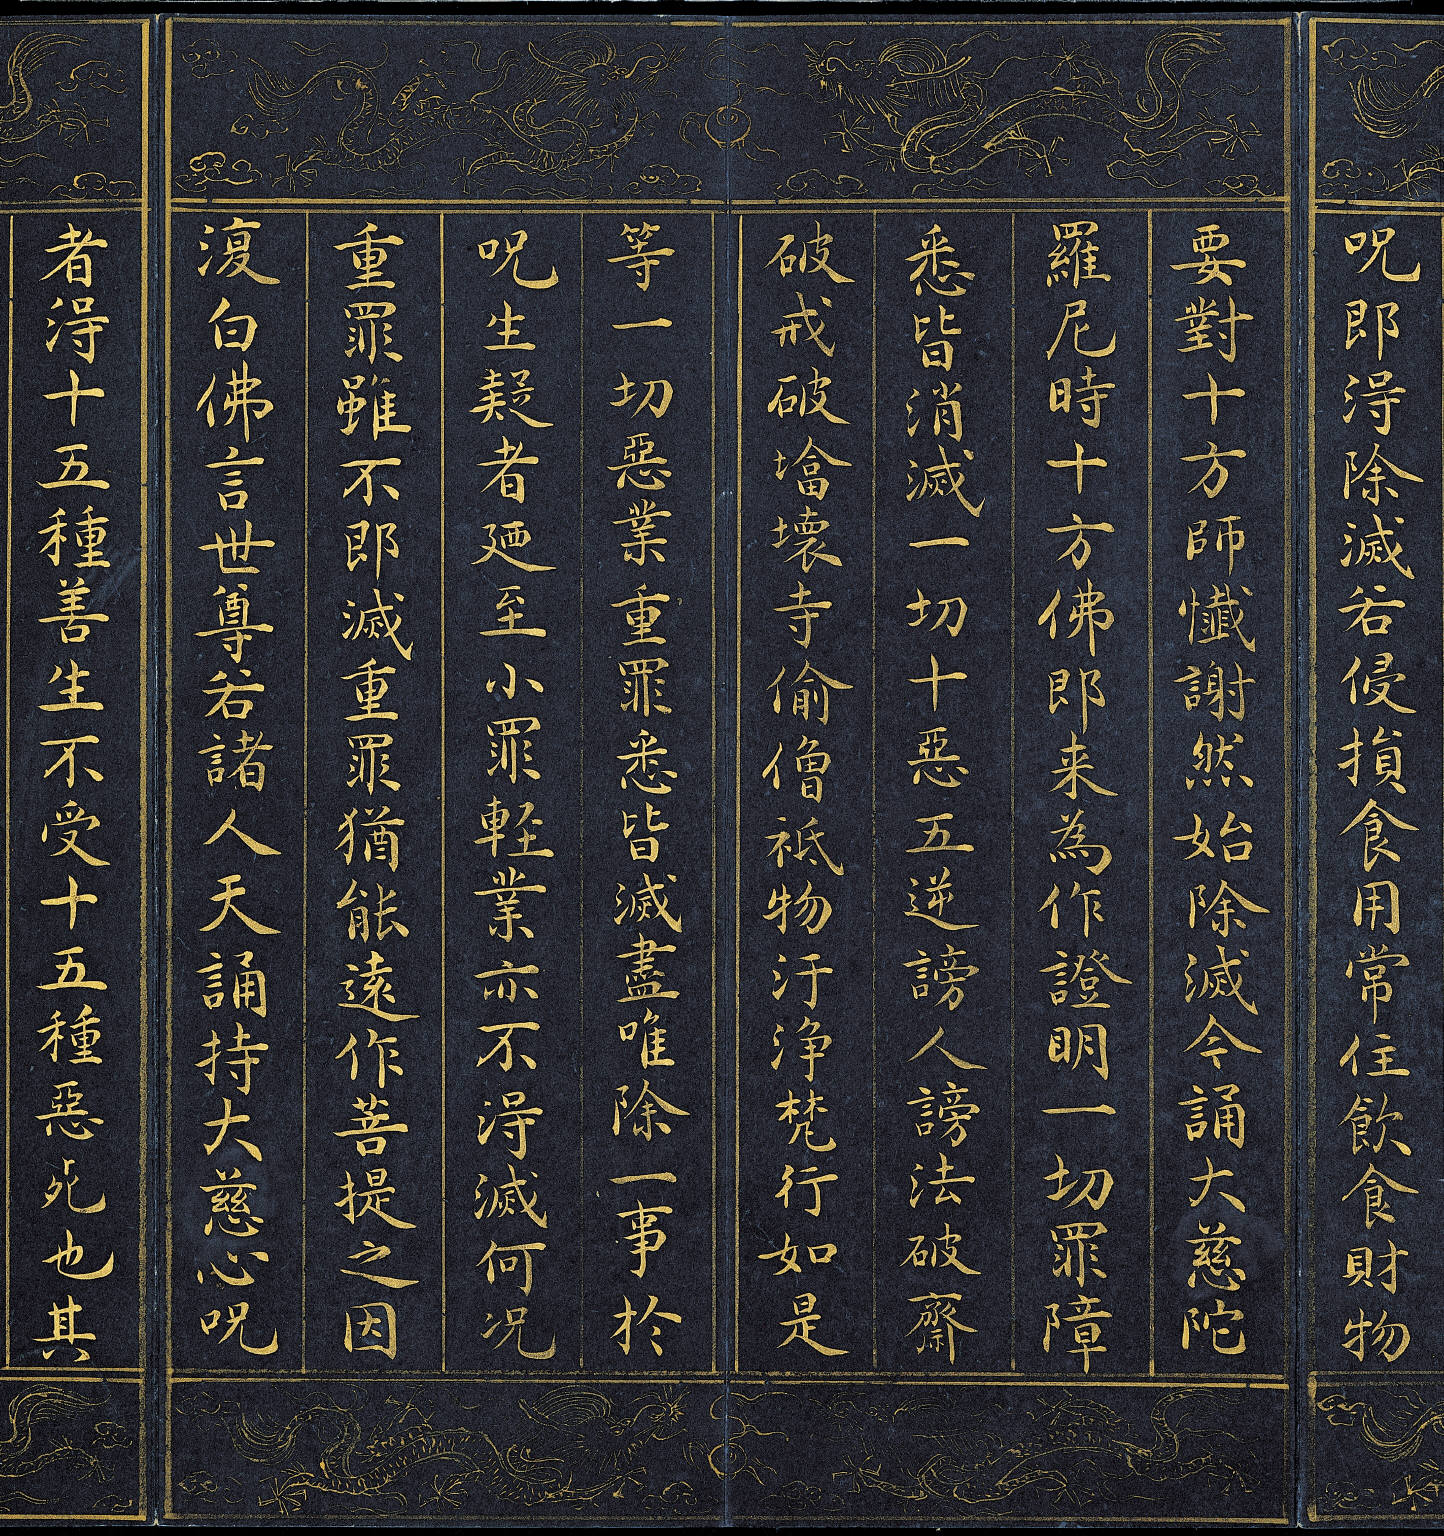 呪即得除滅若侵損食用常住飲食財物
要對十方師懺謝然始除滅今誦大慈陀
羅尼時十方佛即来為作證明一切罪障
悉皆消滅一切十惡五逆謗人謗法破齋
破戒破塔壞寺偷僧祇物汙淨梵行如是
等一切惡業重罪悉皆滅盡唯除一事於
呪生疑者廼至小罪輕業亦不得滅何况
重罪雖不即滅重罪猶能遠作菩提之因
復白佛言世尊若諸人天誦持大慈心呪
者得十五種善生不受十五種惡死也其